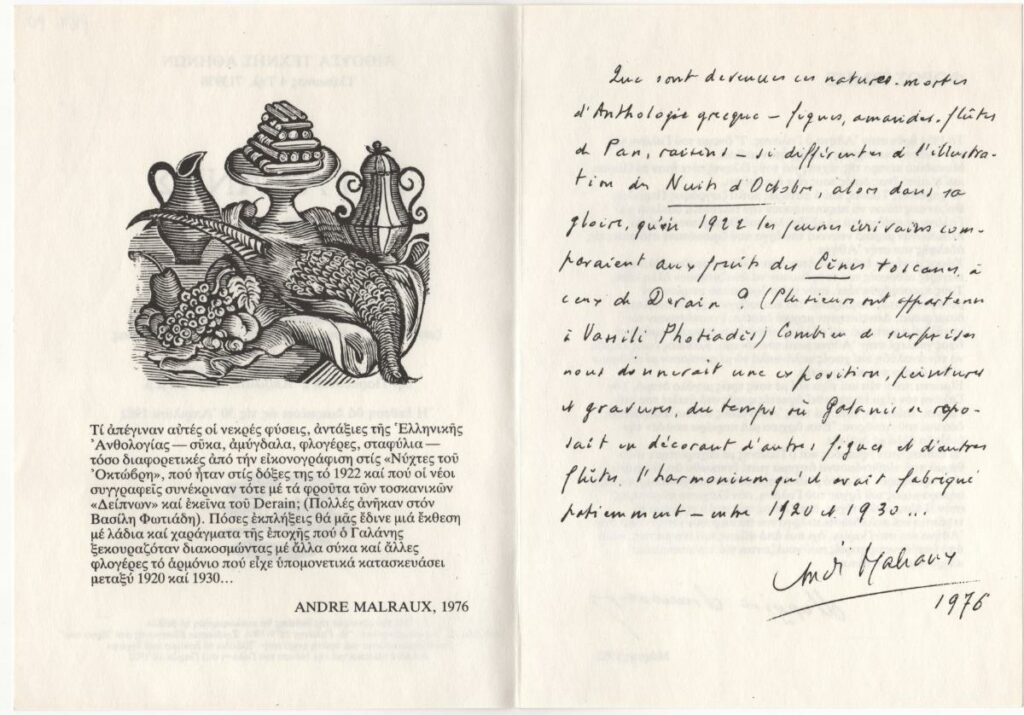 Τί ἀπέγιναν αὐτές οἱ νεκρές φύσεις, ἀντάξιες τῆς Ἑλληνικῆς
Ἀνθολογίας — σῦκα, ἀμύγδαλα, φλογέρες, σταφύλια —
τόσο διαφορετικές ἀπό τήν εἰκονογράφιση στίς «Νύχτες τοῦ
Ὀκτώβρη», πού ἦταν στίς δόξες της τό 1922 καί πού οἱ νέοι
συγγραφεῖς συνέκριναν τότε μέ τά φροῦτα τῶν τοσκανικῶν
«Δείπνων» καί ἐκεῖνα τοῦ Derain; (Πολλές ἀνῆκαν στόν
Βασίλη Φωτιάδη). Πόσες ἐκπλήξεις θά μᾶς ἔδινε μιά ἔκθεση
μέ λάδια καί χαράγματα τῆς ἐποχῆς πού ὁ Γαλάνης
ξεκουραζόταν διακοσμώντας μέ ἄλλα σύκα καί ἄλλες
φλογέρες τό ἁρμόνιο πού εἶχε ὑπομονετικά κατασκευάσει
μεταξύ 1920 καί 1930...
ANDRE MALRAUX, 1976
Que sont devenues ces natures-mortes
d'Anthologie grecque — figues, amandes, flûtes
de Pan, raisins — si différentes de l'illustra-
tion des Nuits d'Octobre, alors dans sa
gloire, qu'en 1922 les jeunes écrivains com-
paraient aux fruits des Cènes toscanes, à
ceux de Derain ? (Plusieurs ont appartenu
à Vassili Photiadès) Combien de surprises
nous donnerait une exposition, peintures
et gravures, du temps où Galanis se repo-
sait en décorant d'autres figues et d'autres
flûtes, l'harmonium qu'il avait fabriqué
patiemment — entre 1920 et 1930...
André Malraux
1976